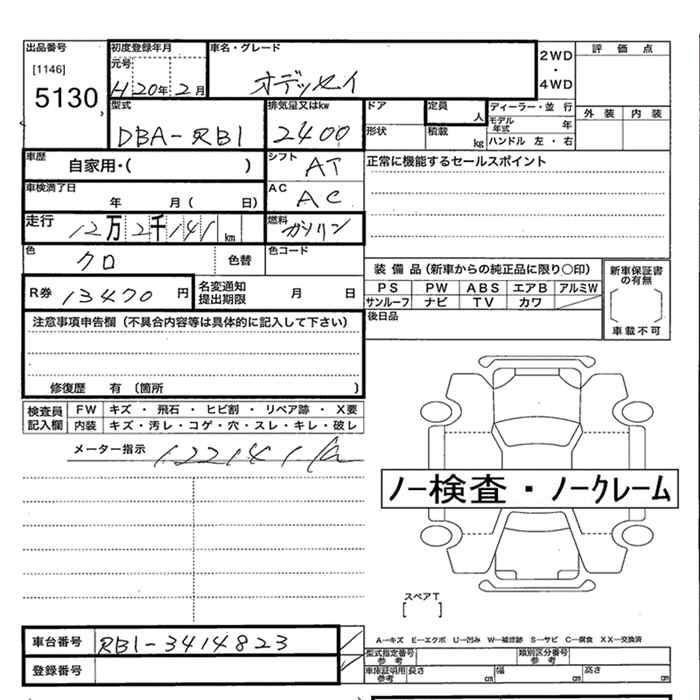 出品番号 初度登録年月 車名・グレード 2WD 評価点
[1146] 元号 ・
5130 H20年2月 オデッセイ 4WD
型式 排気量又はkw ドア 定員 人 ディーラー・並行 外装 内装
DBA-RB1 2400 形状 積載 kg モデル年式 年
ハンドル 左・右
車歴 自家用・( ) シフト AT 正常に機能するセールスポイント
車検満了日 年 月( 日) AC AC
走行 12万2千141km 燃料 ガソリン
色 クロ 色替 色コード
装備品(新車からの純正品に限り○印) 新車保証書の有無
R券 13470円 名変通知提出期限 月 日 PS PW ABS エアB アルミW
サンルーフ ナビ TV カワ 車載不可
注意事項申告欄(不具合内容等は具体的に記入して下さい) 後日品
修復歴 有 〔箇所 〕
検査員記入欄 FW キズ・飛石・ヒビ割・リペア跡・X要
内装 キズ・汚レ・コゲ・穴・スレ・キレ・破レ
メーター指示 122141
ノー検査・ノークレーム
スペアT
[ ]
車台番号 RB1-3414823 A―キズ E―エクボ U―凹み W―補修跡 S―サビ C―腐食 XX―交換済
型式指定番号 参考 類別区分番号 参考
登録番号 車庫証明用参考 長さ cm 幅 cm 高さ cm